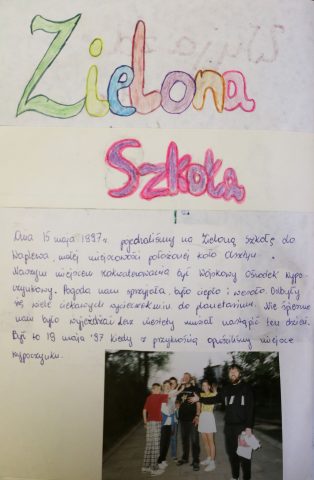 Zielona
Szkoła
Dnia 15 maja 1997r. pojechaliśmy na Zieloną Szkołę do
Waplewa, małej miejscowości położonej koło Olsztyna.
Naszym miejscem zakwaterowania był Wojskowy Ośrodek Wypo-
czynkowy. Pogoda nam sprzyjała, było ciepło i wesoło. Odbyły
się wiele ciekawych wycieczek m.in do planetarium. Nie śpieszno
nam było wyjeżdżać lecz niestety musiał nastąpić ten dzień.
Był to 19 maja '97 kiedy z przykrością opuściliśmy miejsce
wypoczynku.